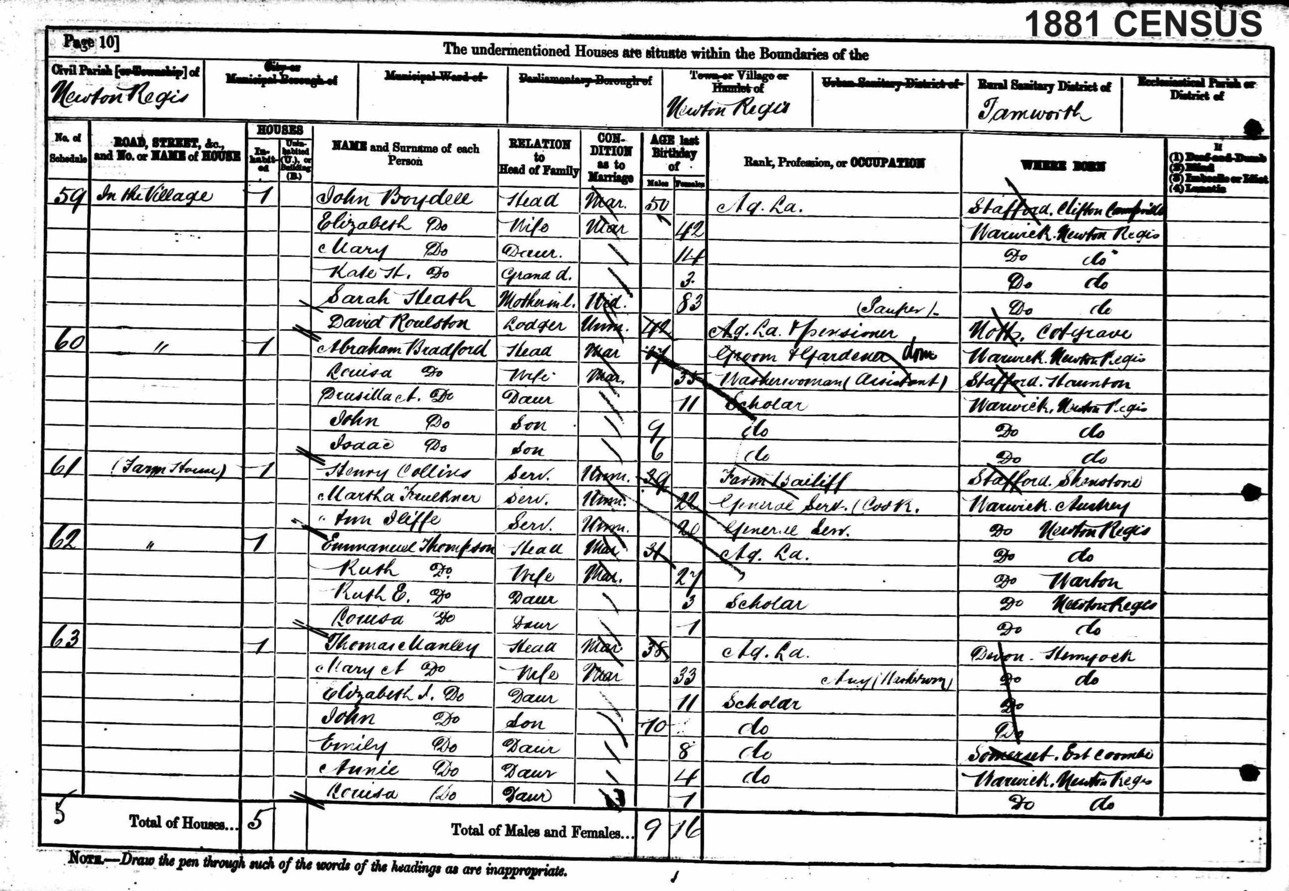 1881 CENSUS
Page 10]
The undermentioned Houses are situate within the Boundaries of the
Civil Parish [or Township] of City or Municipal Borough of Municipal Ward of Parliamentary Borough of Town or Village or Hamlet of Urban Sanitary District of Rural Sanitary District of Ecclesiastical Parish or District of
Newton Regis Newton Regis Tamworth
No. of Schedule ROAD, STREET, &c., and No. or NAME of HOUSE HOUSES Inhabited Uninhabited (U.), or Building (B.) NAME and Surname of each Person RELATION to Head of Family CONDITION as to Marriage AGE last Birthday of Males Females Rank, Profession, or OCCUPATION WHERE BORN If (1) Deaf-and-Dumb (2) Blind (3) Imbecile or Idiot (4) Lunatic
59 In the Village 1 John Boydell Head Mar. 50 Ag. La. Stafford, Clifton Campville
Elizabeth Do Wife Mar 42 Warwick. Newton Regis
Mary Do Daur. 14 Do do
Kate H. Do Grand d. 3 Do do
Sarah Heath Mother in l. Wid. 83 (Pauper) Do do
David Roulston Lodger Unm. 42 Ag. La. & pensioner Notts, Cotgrave
60 " 1 Abraham Bradford Head Mar Groom & Gardener dom Warwick. Newton Regis
Louisa Do Wife Mar. 35 Washerwoman (Assistant) Stafford. Haunton
Prusilla A. Do Daur 11 Scholar Warwick. Newton Regis
John Do Son 9 do Do do
Isaac Do Son 6 do Do do
61 (Farm House) 1 Henry Collins Serv. Unm. 39 Farm Bailiff Stafford. Shenstone
Martha Faulkner Serv. Unm. 22 General Serv. (Cook. Warwick Austrey
Ann Iliffe Serv. Unm. 20 General Serv. Do Newton Regis
62 " 1 Emmanuel Thompson Head Mar 31 Ag. La. Do do
Ruth Do Wife Mar. 27 Do Warton
Ruth E. Do Daur 3 Scholar Do Newton Regis
Louisa Do Daur 1 Do do
63 1 Thomas Manley Head Mar 38 Ag. La. Devon. Hemyock
Mary A Do Wife Mar 33 Do do
Elizabeth J. Do Daur 11 Scholar Do
John Do Son 10 do Do
Emily Do Daur 8 do Somerset. Est Coombe
Annie Do Daur 4 do Warwick. Newton Regis
Louisa Do Daur 1 Do do
5 Total of Houses... 5 Total of Males and Females... 9 16
NOTE.—Draw the pen through such of the words of the headings as are inappropriate.